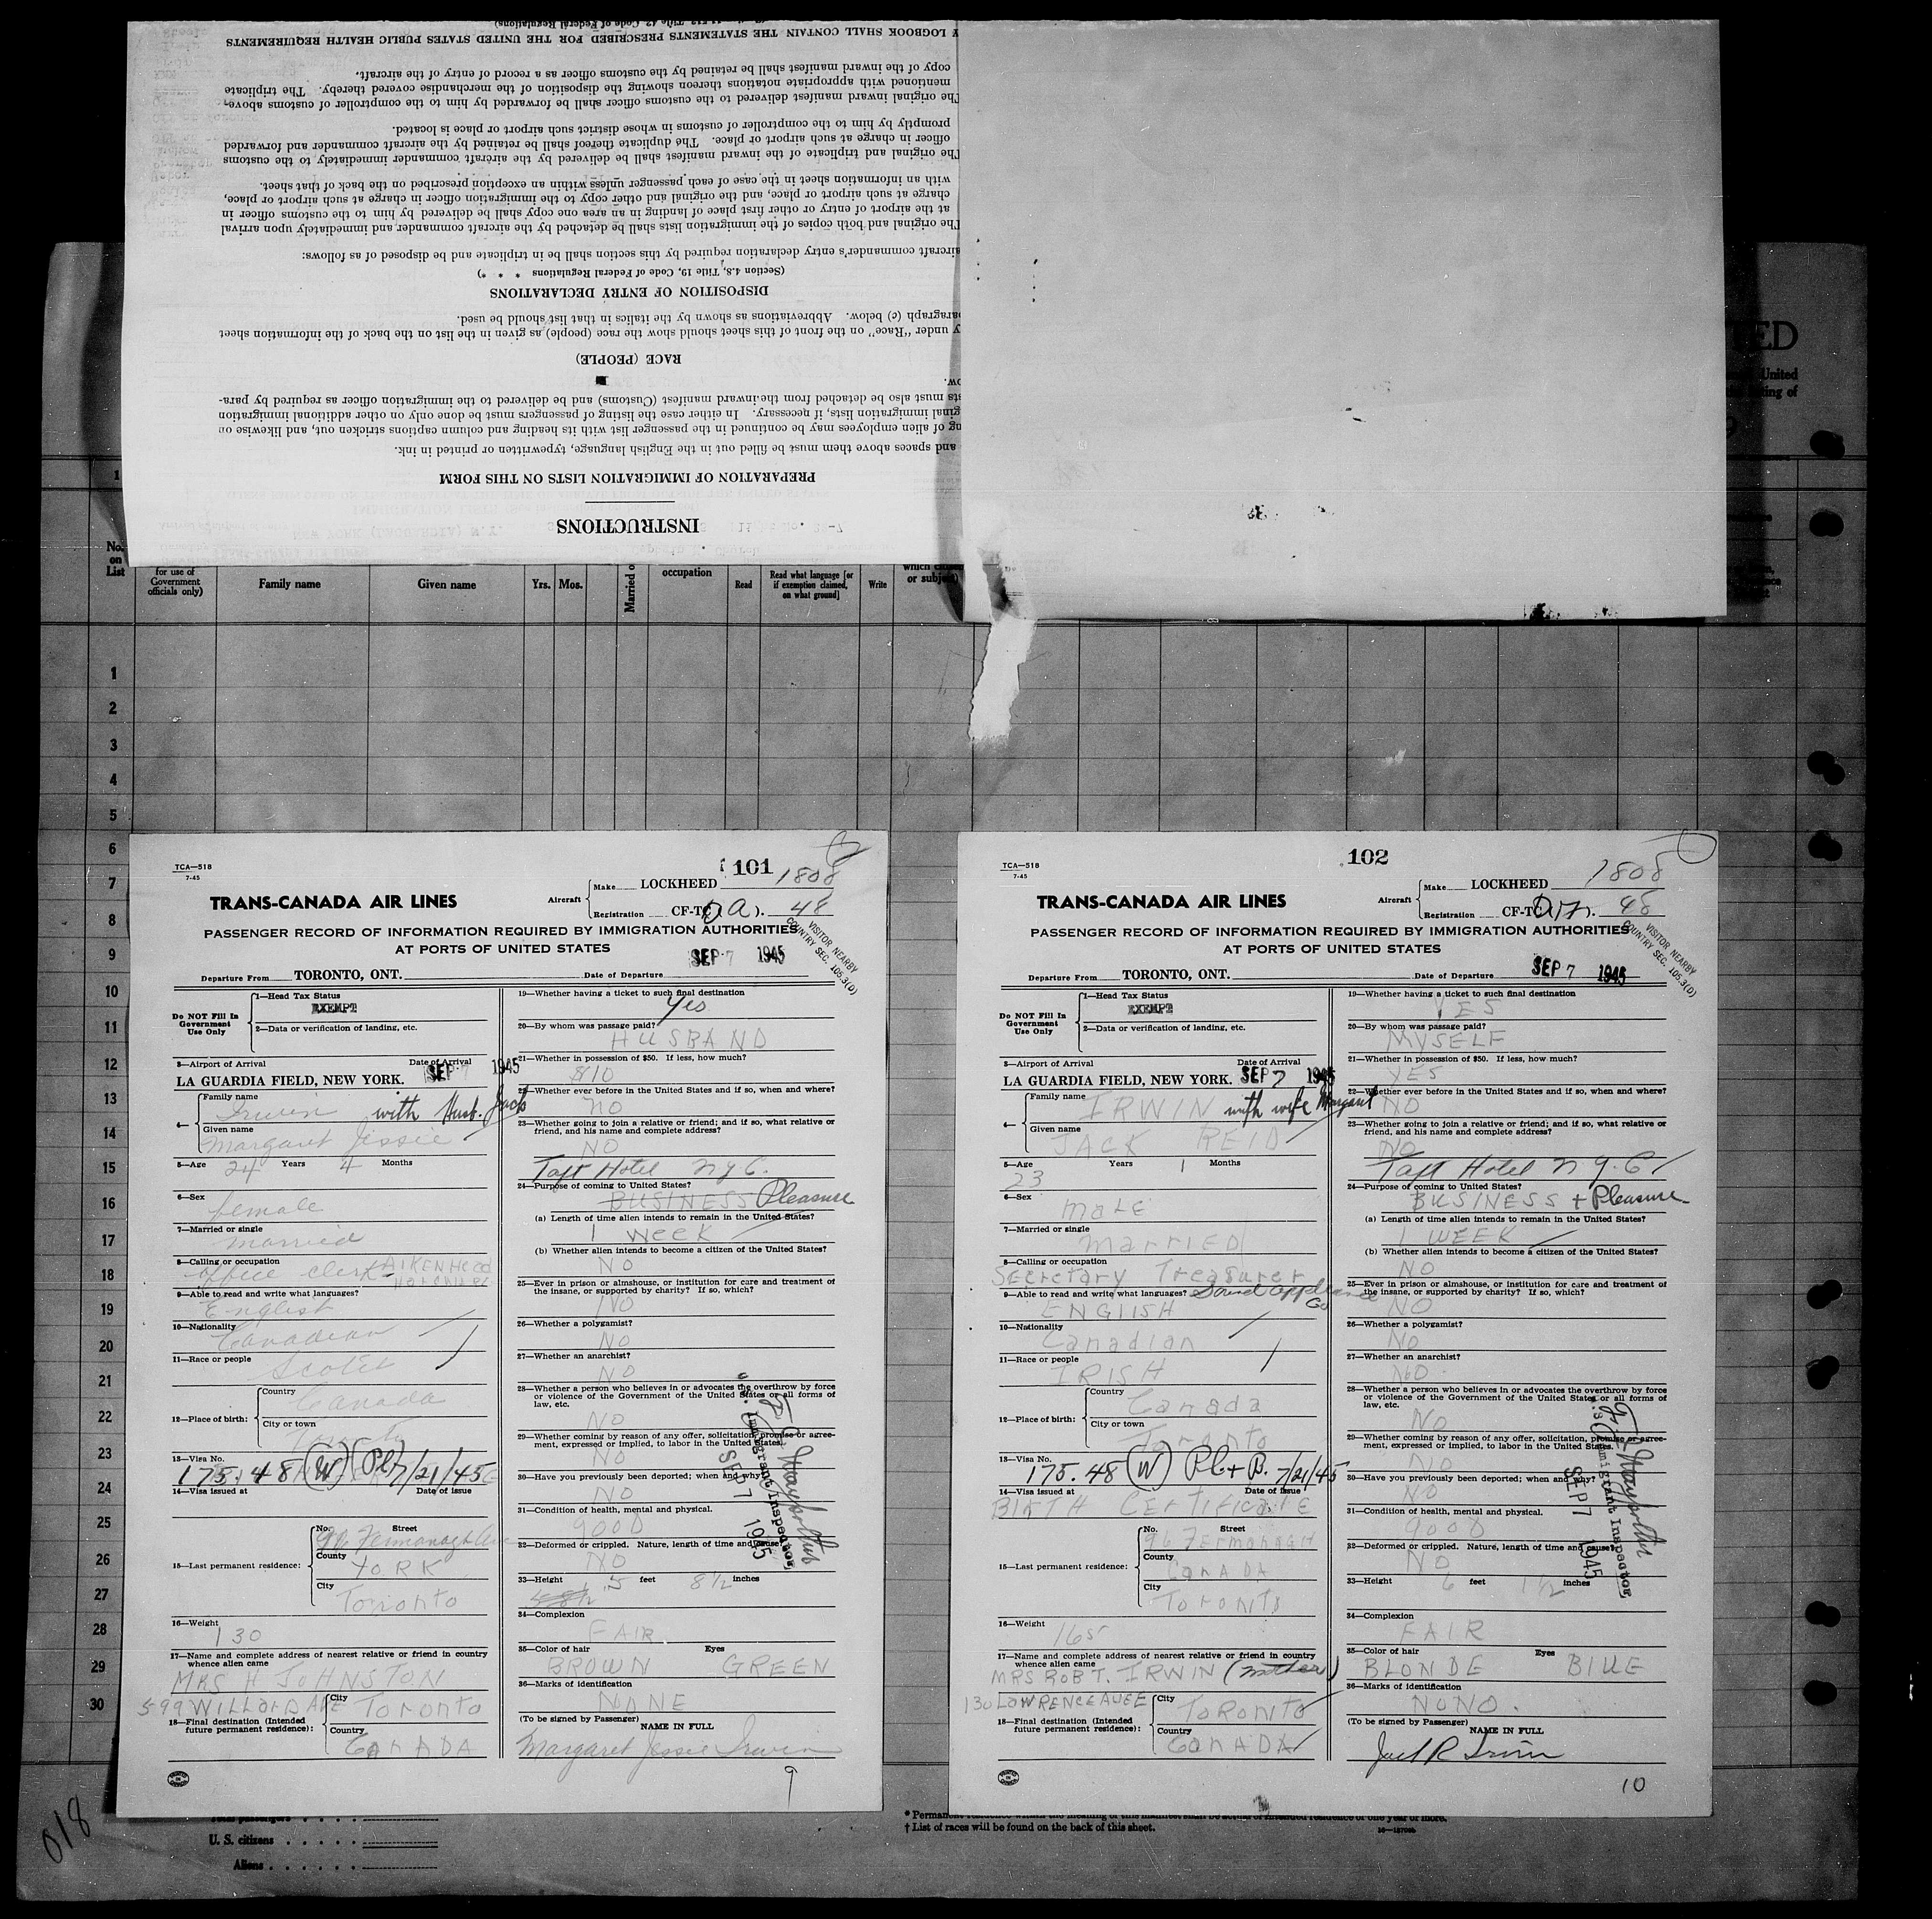 INSTRUCTIONS
PREPARATION OF IMMIGRATION LISTS ON THIS FORM
and spaces above them must be filled out in the English language, typewritten or printed in ink.
of alien employees may be continued in the passenger list with its heading and column captions stricken out, and likewise on
immigration lists, if necessary. In either case the listing of passengers must be done only on other additional immigration
must also be detached from the inward manifest (Customs) and be delivered to the immigration officer as required by para-
RACE (PEOPLE)
under "Race" on the front of this sheet should show the race (people) as given in the list on the back of the information sheet
paragraph (c) below. Abbreviations as shown by the italics in that list should be used.
DISPOSITION OF ENTRY DECLARATIONS
(Section 4.8, Title 19, Code of Federal Regulations * * *)
aircraft commander's entry declaration required by this section shall be in triplicate and be disposed of as follows:
The original and both copies of the immigration lists shall be detached by the aircraft commander and immediately upon arrival
at the airport of entry or other first place of landing in an area one copy shall be delivered by him to the customs officer in
charge at such airport or place, and the original and other copy to the immigration officer in charge at such airport or place,
with an information sheet in the case of each passenger unless within an exception prescribed on the back of that sheet.
The original and triplicate of the inward manifest shall be delivered by the aircraft commander immediately to the customs
officer in charge at such airport or place. The duplicate thereof shall be retained by the aircraft commander and forwarded
promptly by him to the comptroller of customs in whose district such airport or place is located.
The original inward manifest delivered to the customs officer shall be forwarded by him to the comptroller of customs above-
mentioned with appropriate notations thereon showing the disposition of the merchandise covered thereby. The triplicate
copy of the inward manifest shall be retained by the customs officer as a record of entry of the aircraft.
LOGBOOK SHALL CONTAIN THE STATEMENTS PRESCRIBED FOR THE UNITED STATES PUBLIC HEALTH REQUIREMENTS
Title 42, Code of Federal Regulations)
No. on List
for use of Government officials only)
Family name
Given name
Yrs. Mos.
Married
occupation
Read
Read what language [or if exemption claimed, on what ground]
Write
1
2
3
4
5
6
7
8
9
10
11
12
13
14
15
16
17
18
19
20
21
22
23
24
25
26
27
28
29
30
TCA—518
7-45
101
1808
TRANS-CANADA AIR LINES
Aircraft
Make LOCKHEED
Registration CF-TC (DA). 48
PASSENGER RECORD OF INFORMATION REQUIRED BY IMMIGRATION AUTHORITIES
AT PORTS OF UNITED STATES
VISITOR NEARBY
COUNTRY SEC. 105.3(D)
Departure From TORONTO, ONT. Date of Departure SEP 7 1945
Do NOT Fill In Government Use Only
1—Head Tax Status
EXEMPT
2—Data or verification of landing, etc.
3—Airport of Arrival Date of Arrival
LA GUARDIA FIELD, NEW YORK. SEP 7 1945
4— Family name
Irwin with Husb. Jack
Given name
Margaret Jessie
5—Age 24 Years 4 Months
6—Sex
female
7—Married or single
married
8—Calling or occupation
office clerk AIKENHEAD
9—Able to read and write what languages?
English
10—Nationality
Canadian
11—Race or people
Scotch
12—Place of birth:
Country
Canada
City or town
Toronto
13—Visa No.
175.48 (W) (Pl) 7/21/45
14—Visa issued at Date of issue
15—Last permanent residence:
No. Street
96 Fermanagh Ave
County
YORK
City
Toronto
16—Weight
130
17—Name and complete address of nearest relative or friend in country
whence alien came
MRS H JOHNSTON
599 WILLARD AVE
18—Final destination (Intended
future permanent residence):
City
Toronto
Country
CANADA
19—Whether having a ticket to such final destination
Yes
20—By whom was passage paid?
HUSBAND
21—Whether in possession of $50. If less, how much?
$10
22—Whether ever before in the United States and if so, when and where?
NO
23—Whether going to join a relative or friend; and if so, what relative or
friend, and his name and complete address?
NO
Taft Hotel NYC.
24—Purpose of coming to United States?
BUSINESS Pleasure
(a) Length of time alien intends to remain in the United States?
1 WEEK
(b) Whether alien intends to become a citizen of the United States?
NO
25—Ever in prison or almshouse, or institution for care and treatment of
the insane, or supported by charity? If so, which?
NO
26—Whether a polygamist?
NO
27—Whether an anarchist?
NO
28—Whether a person who believes in or advocates the overthrow by force
or violence of the Government of the United States or all forms of
law, etc.
NO
29—Whether coming by reason of any offer, solicitation, promise or agree-
ment, expressed or implied, to labor in the United States.
NO
30—Have you previously been deported; when and why?
NO
31—Condition of health, mental and physical.
GOOD
32—Deformed or crippled. Nature, length of time and cause?
NO
33—Height 5 feet 8 1/2 inches
34—Complexion
FAIR
35—Color of hair Eyes
BROWN GREEN
36—Marks of identification
NONE
(To be signed by Passenger)
NAME IN FULL
Margaret Jessie Irwin
9
Immigrant Inspector
SEP 7 1945
TCA—518
7-45
102
1808
TRANS-CANADA AIR LINES
Aircraft
Make LOCKHEED
Registration CF-TC 48
PASSENGER RECORD OF INFORMATION REQUIRED BY IMMIGRATION AUTHORITIES
AT PORTS OF UNITED STATES
VISITOR NEARBY
COUNTRY SEC. 105.3(D)
Departure From TORONTO, ONT. Date of Departure SEP 7 1945
Do NOT Fill In Government Use Only
1—Head Tax Status
EXEMPT
2—Data or verification of landing, etc.
3—Airport of Arrival Date of Arrival
LA GUARDIA FIELD, NEW YORK. SEP 7 1945
4— Family name
IRWIN with wife Margaret
Given name
JACK REID
5—Age 23 Years 1 Months
6—Sex
MALE
7—Married or single
MARRIED
8—Calling or occupation
Secretary Treasurer
9—Able to read and write what languages? Sound appliance Co
ENGLISH
10—Nationality
Canadian
11—Race or people
IRISH
12—Place of birth:
Country
Canada
City or town
Toronto
13—Visa No.
175.48 (W) Pl. + B. 7/21/45
14—Visa issued at Date of issue
BIRTH CERTIFICATE
15—Last permanent residence:
No. Street
96 FERMANAGH
County
CANADA
City
TORONTO
16—Weight
165
17—Name and complete address of nearest relative or friend in country
whence alien came
MRS ROBT. IRWIN (mother)
130 LAWRENCE AVE E
18—Final destination (Intended
future permanent residence):
City
TORONTO
Country
CANADA
19—Whether having a ticket to such final destination
YES
20—By whom was passage paid?
MYSELF
21—Whether in possession of $50. If less, how much?
YES
22—Whether ever before in the United States and if so, when and where?
NO
23—Whether going to join a relative or friend; and if so, what relative or
friend, and his name and complete address?
NO
Taft Hotel N.Y.C.
24—Purpose of coming to United States?
BUSINESS + Pleasure
(a) Length of time alien intends to remain in the United States?
1 WEEK
(b) Whether alien intends to become a citizen of the United States?
NO
25—Ever in prison or almshouse, or institution for care and treatment of
the insane, or supported by charity? If so, which?
NO
26—Whether a polygamist?
NO
27—Whether an anarchist?
NO
28—Whether a person who believes in or advocates the overthrow by force
or violence of the Government of the United States or all forms of
law, etc.
NO
29—Whether coming by reason of any offer, solicitation, promise or agree-
ment, expressed or implied, to labor in the United States.
NO
30—Have you previously been deported; when and why?
NO
31—Condition of health, mental and physical.
GOOD
32—Deformed or crippled. Nature, length of time and cause?
NO
33—Height 6 feet 1 1/2 inches
34—Complexion
FAIR
35—Color of hair Eyes
BLONDE BLUE
36—Marks of identification
NONO.
(To be signed by Passenger)
NAME IN FULL
Jack R Irwin
10
Immigrant Inspector
SEP 7 1945
018
U. S. citizens
Aliens
† List of races will be found on the back of this sheet.